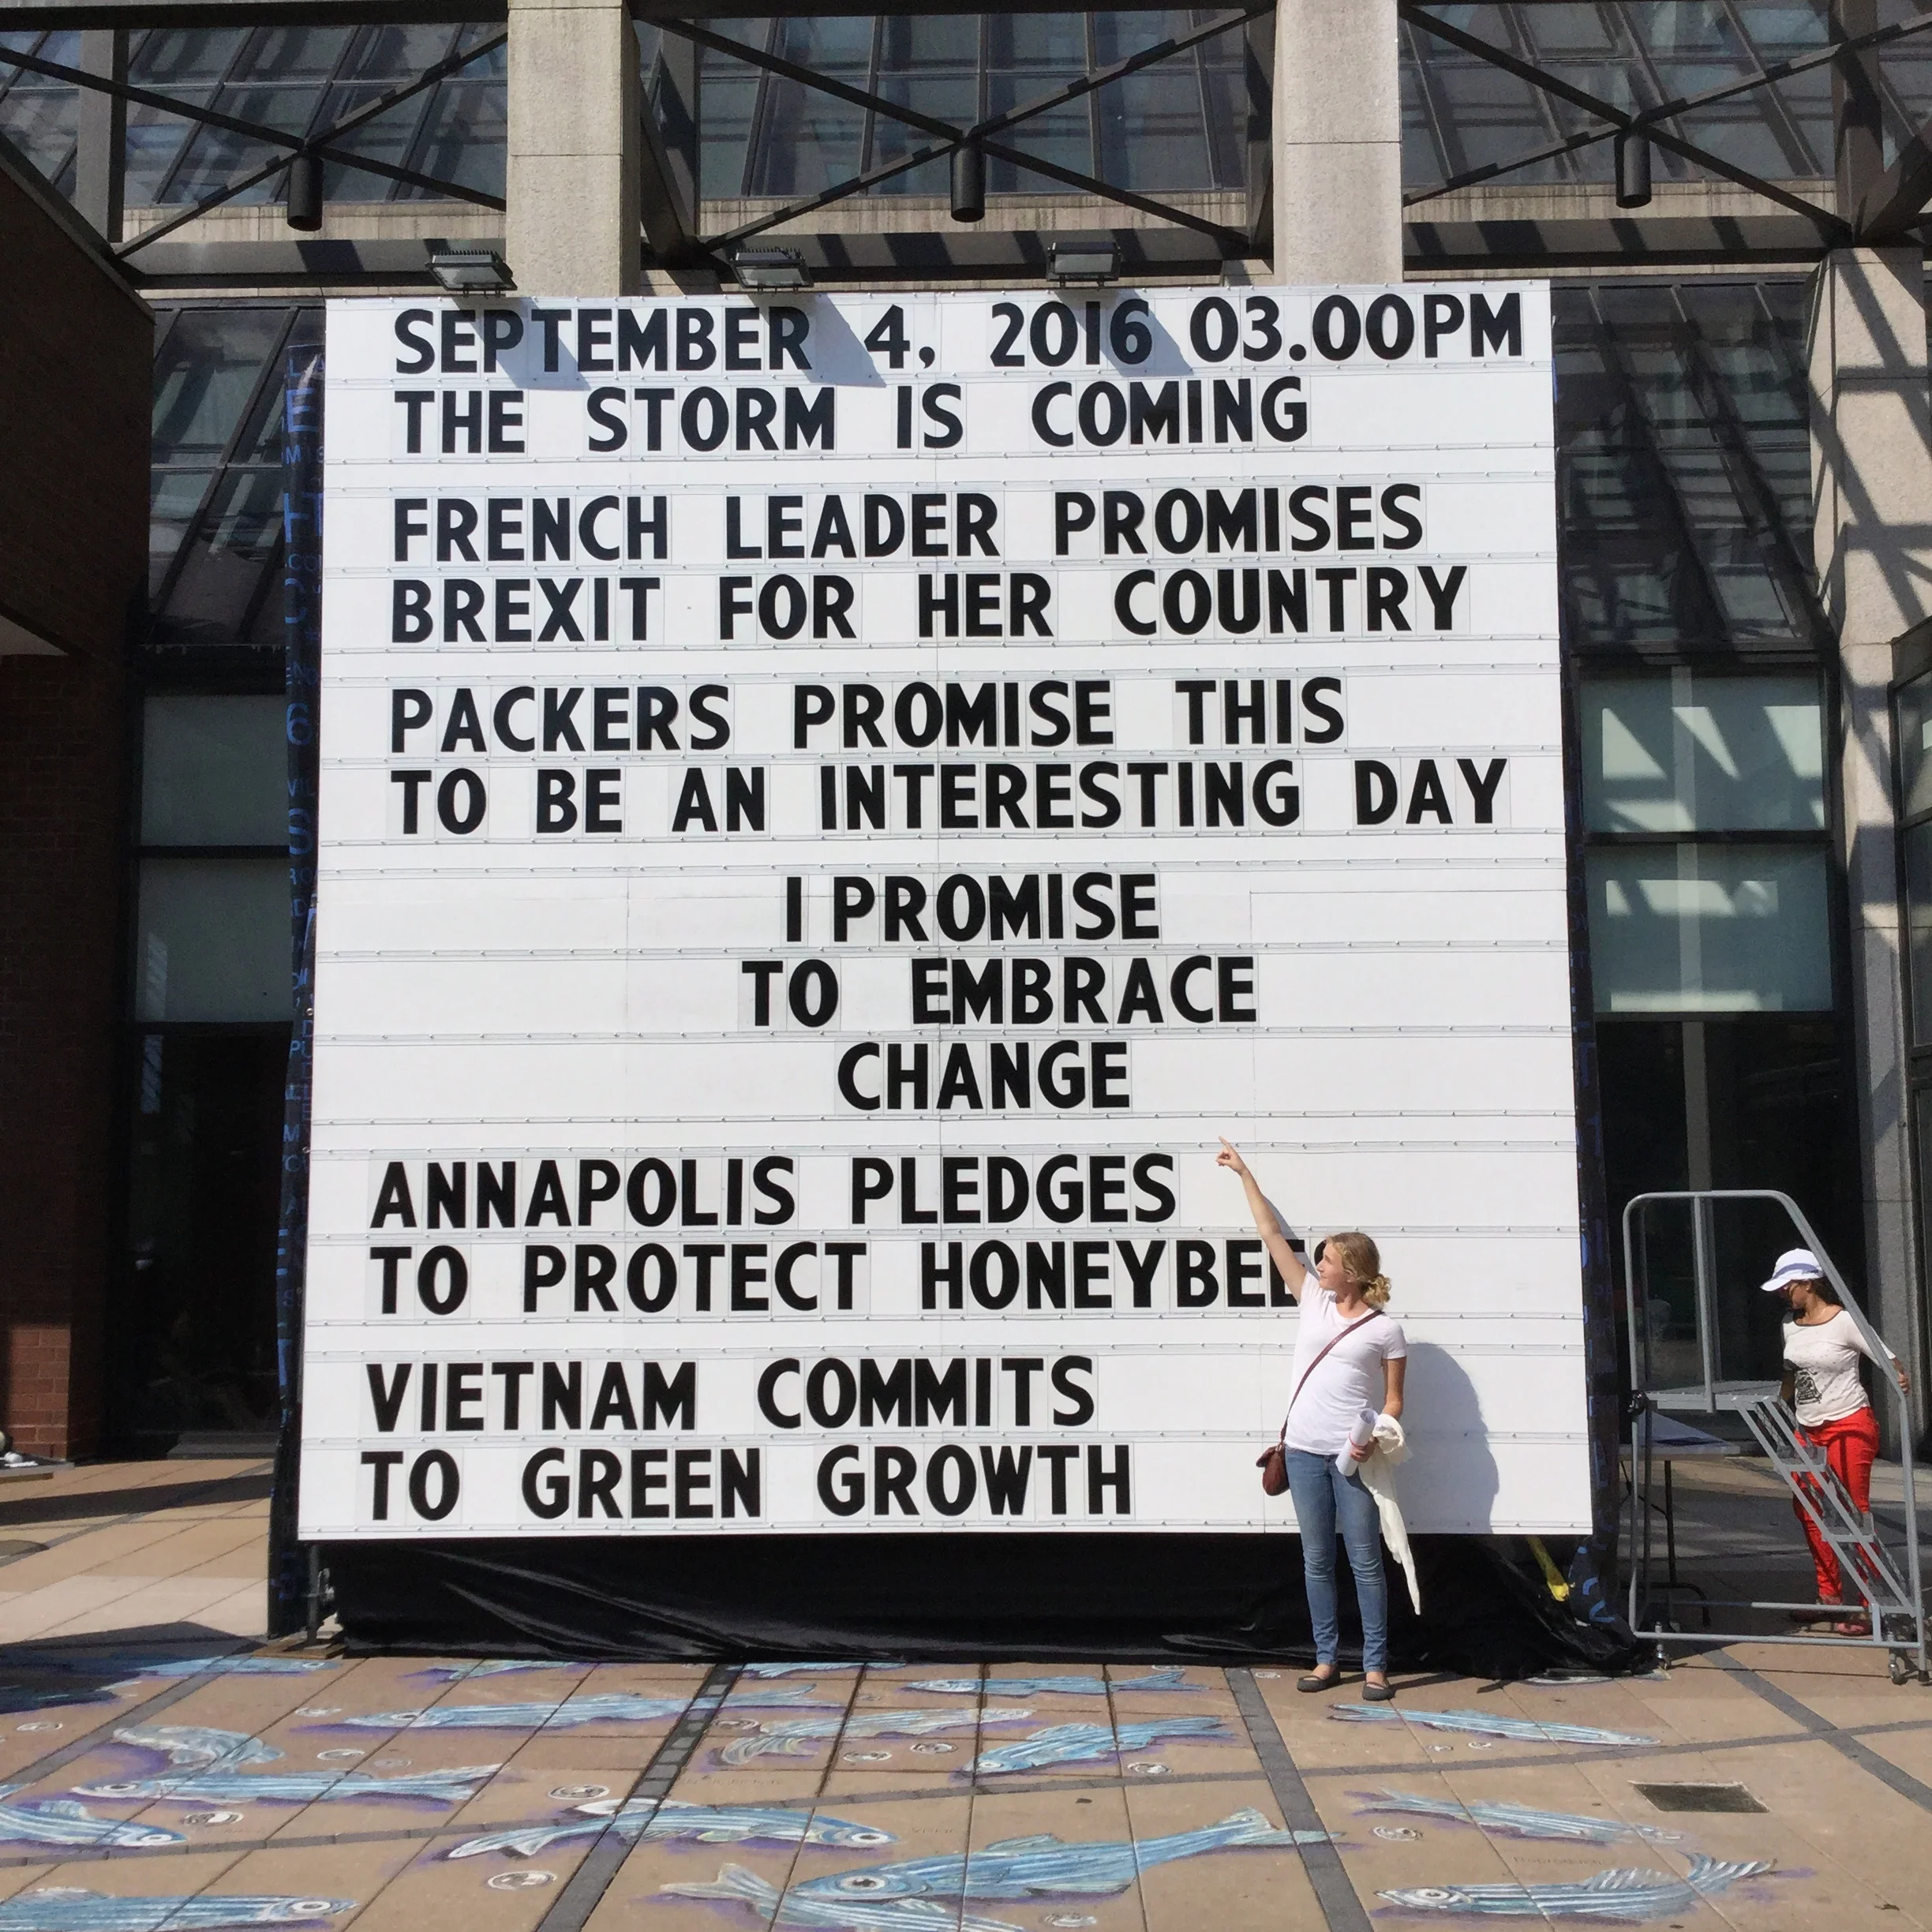 SEPTEMBER 4, 2016 03.00PM
THE STORM IS COMING
FRENCH LEADER PROMISES
BREXIT FOR HER COUNTRY
PACKERS PROMISE THIS
TO BE AN INTERESTING DAY
I PROMISE
TO EMBRACE
CHANGE
ANNAPOLIS PLEDGES
TO PROTECT HONEYBEES
VIETNAM COMMITS
TO GREEN GROWTH